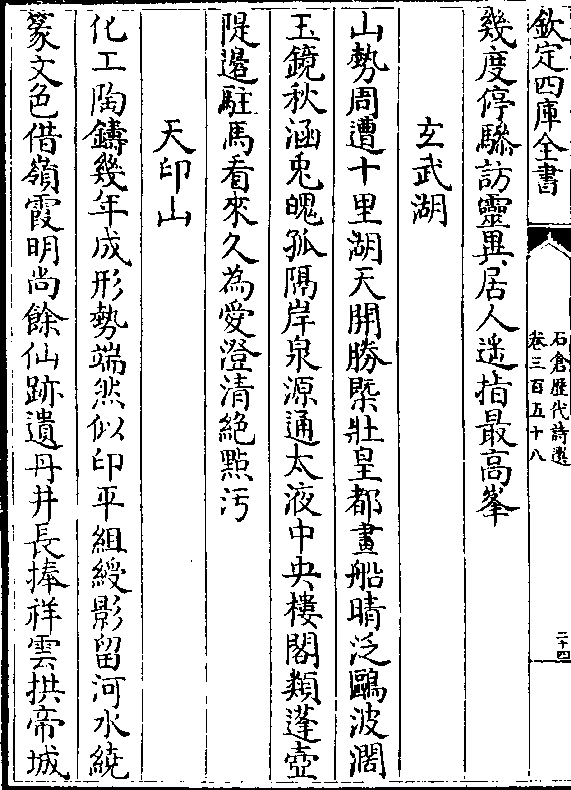 欽定四庫全書
石倉歷代詩選
卷三百五十八
二十四
幾度停驂訪靈異居人遙指最高峯
玄武湖
山勢周遭十里湖天開勝槩壯皇都畫船晴泛鷗波濶
玉鏡秋涵兎魄孤隔岸泉源通太液中央樓閣類蓬壺
隄邊駐馬看來久為愛澄清絶㸃污
天印山
化工陶鑄幾年成形勢端然似印平組綬影留河水繞
篆文色借嶺霞明尚餘仙跡遺丹井長捧祥雲拱帝城